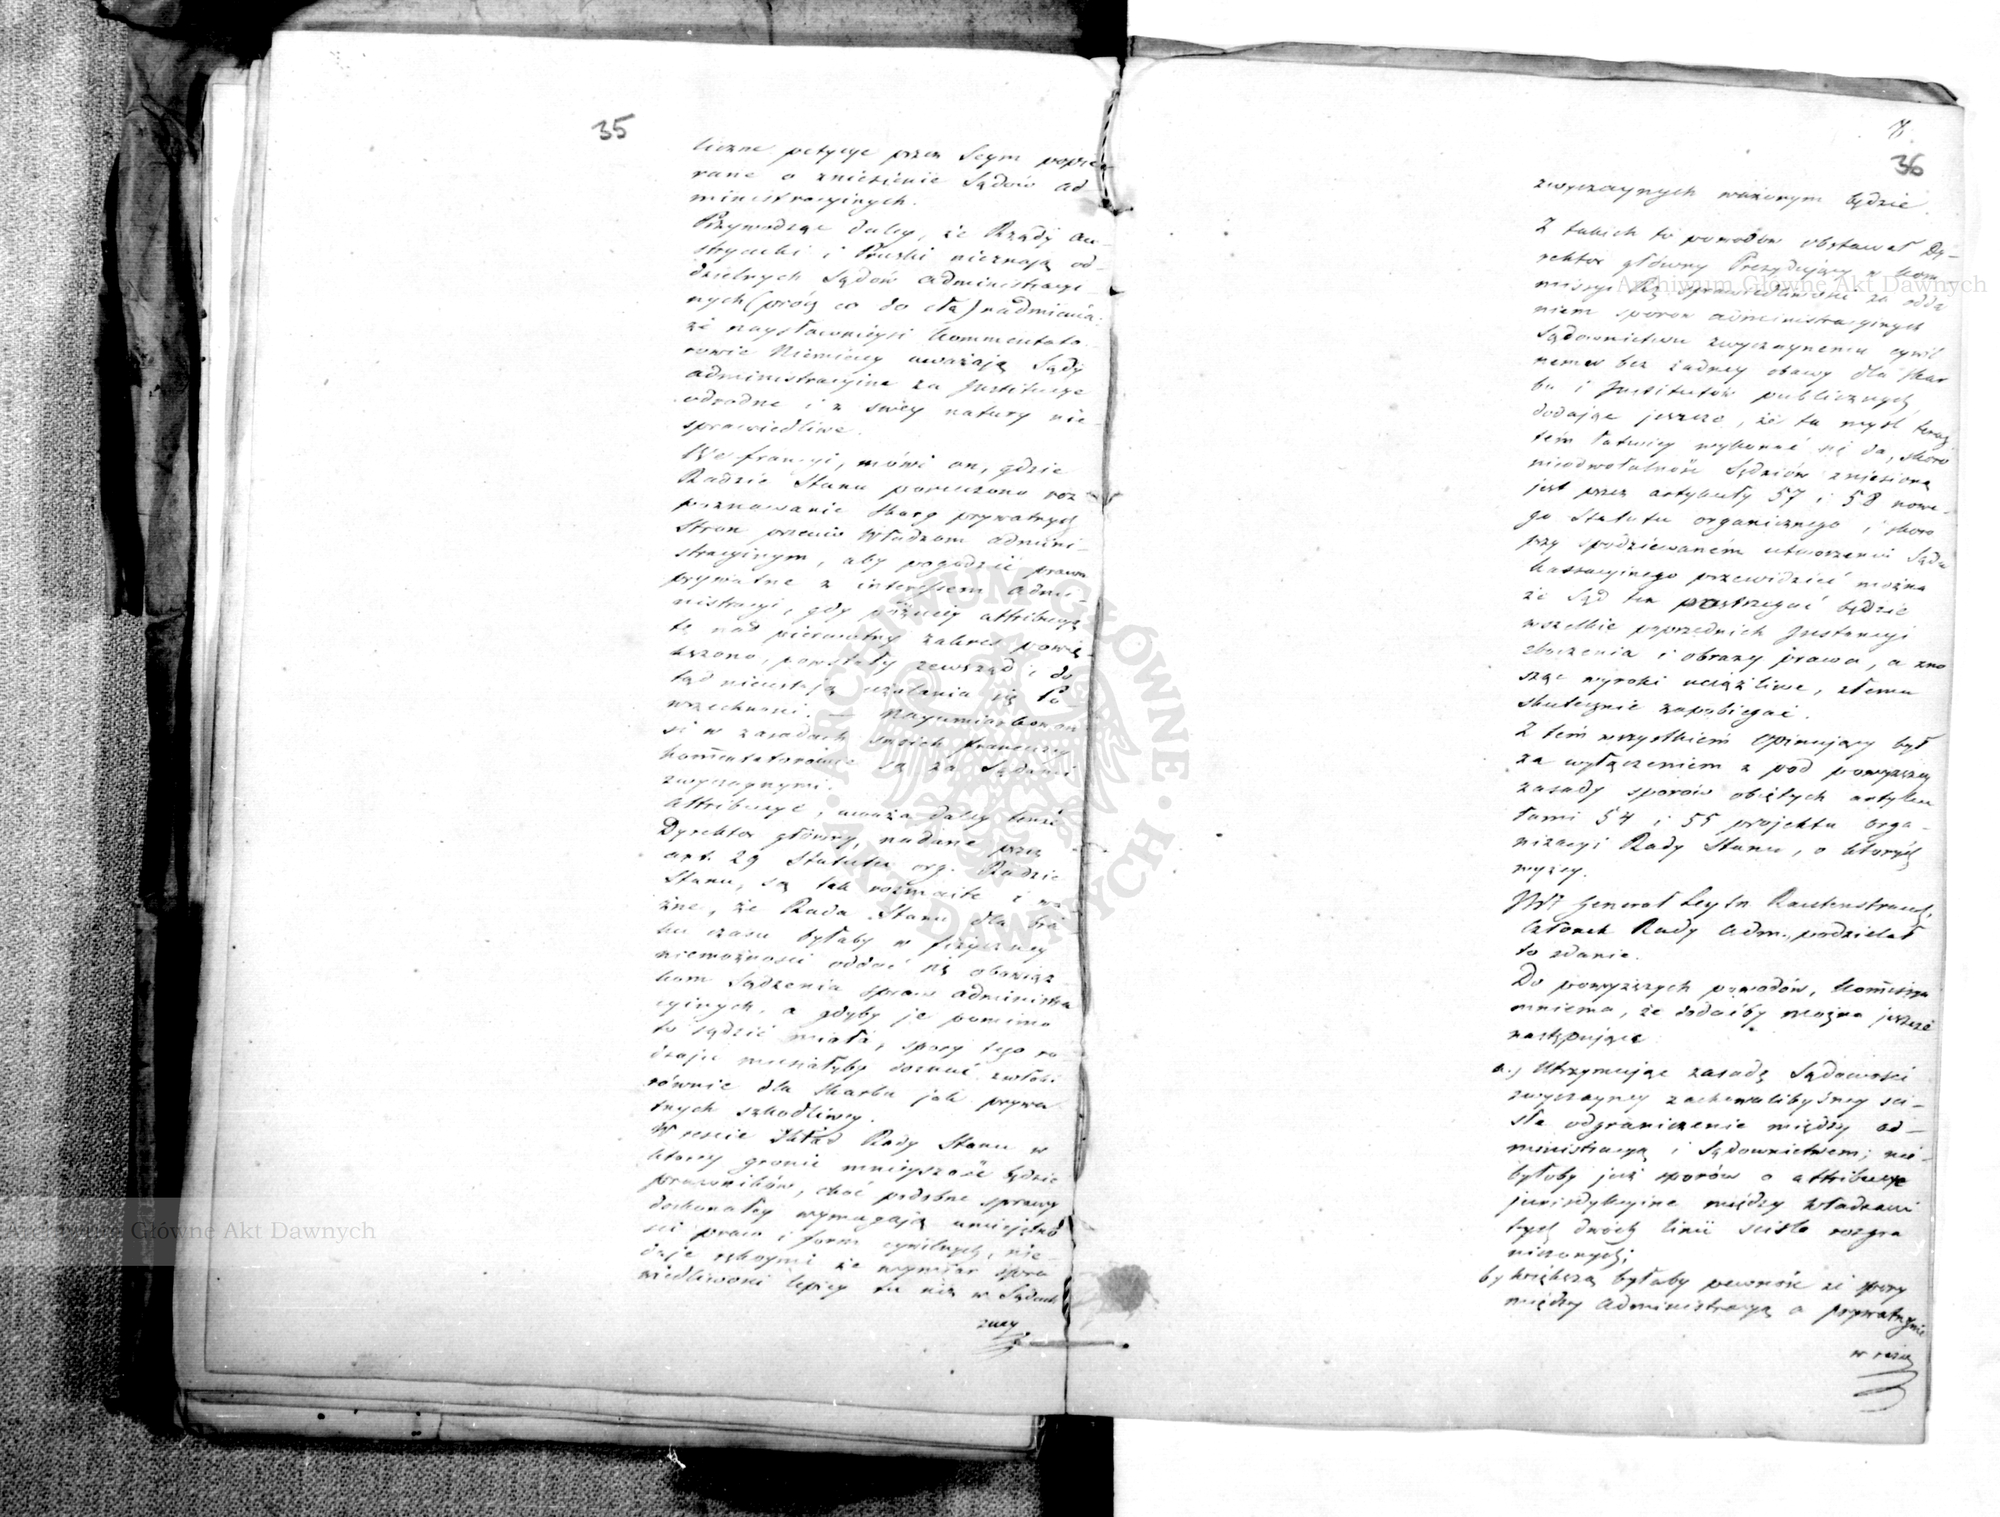 35
liczne petycye przez Seym popie-
rane o zniesienie Sądów ad-
ministracyinych.
Przywodząc daley, że Rządy Au-
stryacki i Pruski nieznają od-
dzielnych Sądów administracyi-
nych (prócz co do cła) nadmienia:
że naysławnieysi Kommentato-
rowie Niemieccy uważają Sądy
administracyine za Instytucye
odrodne i z swey natury nie-
sprawiedliwe.
We francyi, mówi on, gdzie
Radzie Stanu poruczono roz-
poznawanie skarg prywatnych
Stron przeciw Władzom admini-
stracyinym, aby pogodzić prawa
prywatne z interessem admi-
nistracyi, gdy później attribucyą
tę nad pierwotny zakres powię-
kszono, powstały zewsząd i do
tąd nieustają użalania się Po-
wszechności. — Nayumiarkowań
si w zasadach swoich francuzcy
kommentatorowie są za Sądami
zwyczaynymi.
Attribucye, uważa daley tenże
Dyrektor główny, nadane przez
art. 29 Statutu org. Radzie
Stanu, są tak rozmaite i wa
żne, że Rada Stanu dla bra-
ku czasu byłaby w fizyczney
niemożności oddać się obowiąz
kom Sądzenia spraw administra
cyinych, a gdyby je pomimo
to sądzić miała, spory tego ro-
dzaju musiałyby doznać zwłoki
równie dla Skarbu jak prywa
tnych szkodliwey.
W reście Skład Rady Stanu w
którey gronie mnieyszość będzie
prawników, choć podobne sprawy
doskonałey wymagają umiejętno
ści prawa i form cywilnych, nie-
daje rękoymi że wymiar spra
wiedliwości lepszy tu niż w Sądach
zwy
36
zwyczaynych ważonym będzie.
Z takich to powodów obstawał Dy-
rektor główny Prezydujący w Kom
missyi Rz. Sprawiedliwości za odda
niem sporów administracyinych
Sądownictwu zwyczaynemu cywil
nemu bez żadney obawy dla Skar
bu i Instytutów publicznych,
dodając jeszcze, że ta myśl teraz
tém łatwiey wykonać się da, skoro
nieodwołalność Sędziów zniesioną
jest przez artykuły 57 i 58 nowe-
go Statutu organicznego i skoro
przy spodziewaném utworzeniu Sądu
Kassacyinego przewidzieć można
że Sąd ten postrzegać będzie
wszelkie poprzednich Instancyi
zboczenia i obrazy prawa, a zno
sząc wyroki uciążliwe, złemu
skutecznie zapobiegać.
Z tém wszystkiém Opinujący był
za wyłączeniem z pod powyższey
zasady sporów objętych artyku
łami 54 i 55 projektu Orga-
nizacyi Rady Stanu, o których
wyżey.
JW Generał Leytn Rautenstrauch,
Członek Rady Adm., podzielał
to zdanie.
Do powyższych powodów, Kommissya
mniema, że dodaćby można jeszcze
następujące
a., Utrzymując zasadę Sądowości
zwyczayney zachowalibyśmy ści-
słe odgraniczenie między ad-
ministracyą i Sądownictwem; nie-
byłoby już sporów o attribucye
jurisdykcyine między władzami
tych dwóch linii ściśle rozgra
niczonych;
b, większą byłaby pewność że spory
między Administracyą a prywatnymi
w rażą